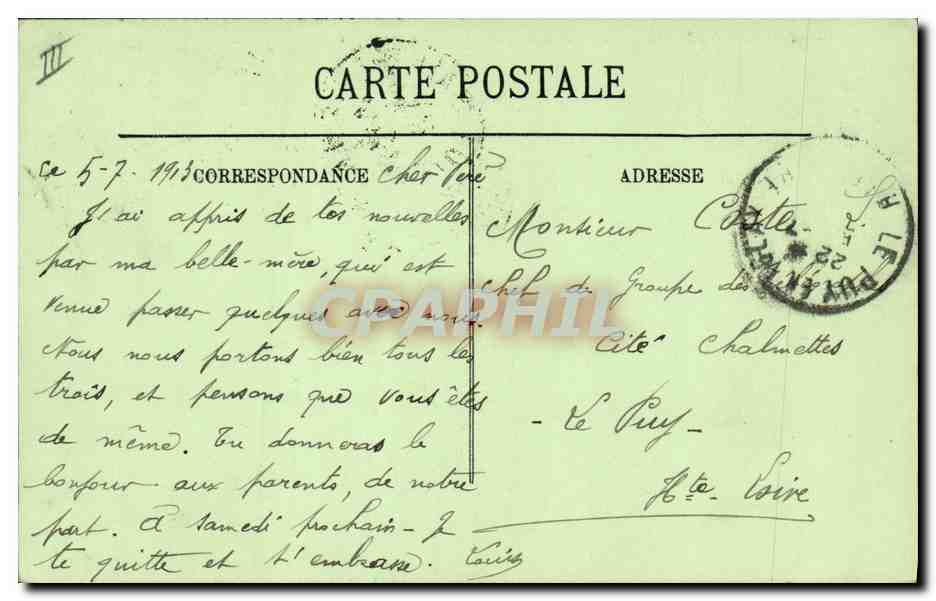 III
CARTE POSTALE
CORRESPONDANCE
ADRESSE
Le 5-7-1913 Cher Père
J'ai appris de tes nouvelles
par ma belle-mère, qui est
venue passer quelques avec nous.
Nous nous portons bien tous les
trois, et pensons que vous êtes
de même. Tu donneras le
bonjour aux parents, de notre
part. A samedi prochain - Je
te quitte et t'embrasse. Louis
Monsieur Coste
Chef de Groupe des
Cité Chalmettes
- Le Puy -
Hte Loire
LE PUY EN VELAY
22
CPAPHIL